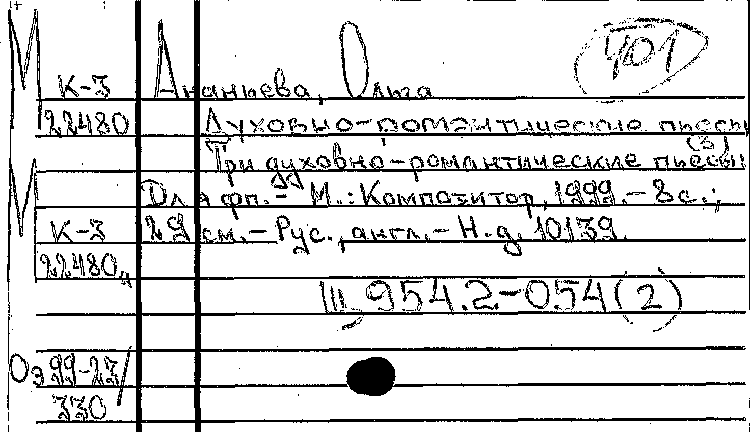 401
М К-3 Ананьева, Ольга
22480 Духовно-романтические пьесы
(3)
Три духовно-романтические пьесы
М Для фп. - М.: Композитор, 1999. - 8 с.;
К-3 29 см. - Рус., англ. - Н.д. 10139.
22480д
III 954.2-054(2)
Оз 99-23/
330